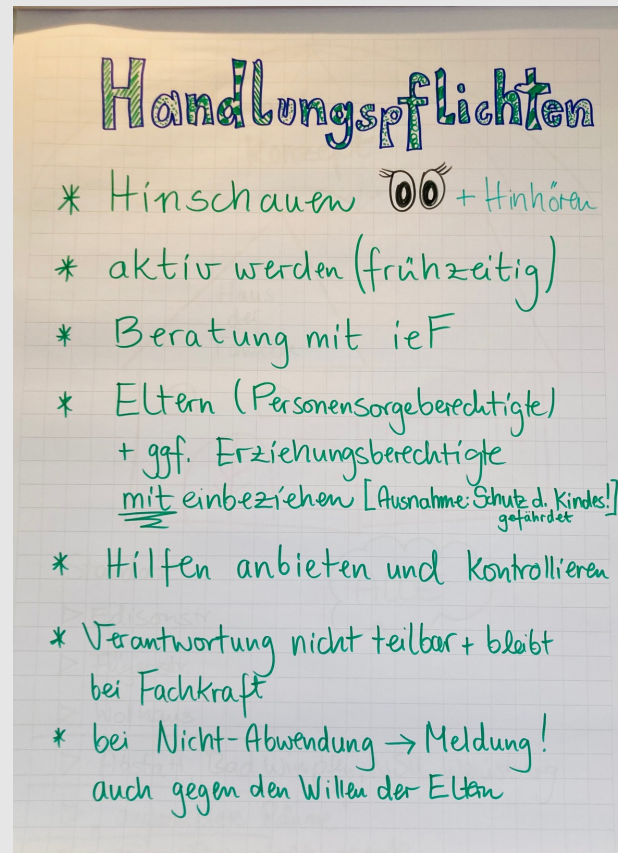 Handlungspflichten
* Hinschauen + Hinhören
* aktiv werden (frühzeitig)
* Beratung mit ieF
* Eltern (Personensorgeberechtigte)
+ ggf. Erziehungsberechtigte
mit einbeziehen [Ausnahme: Schutz d. Kindes!]
gefährdet
* Hilfen anbieten und kontrollieren
* Verantwortung nicht teilbar + bleibt
bei Fachkraft
* bei Nicht-Abwendung → Meldung!
auch gegen den Willen der Eltern